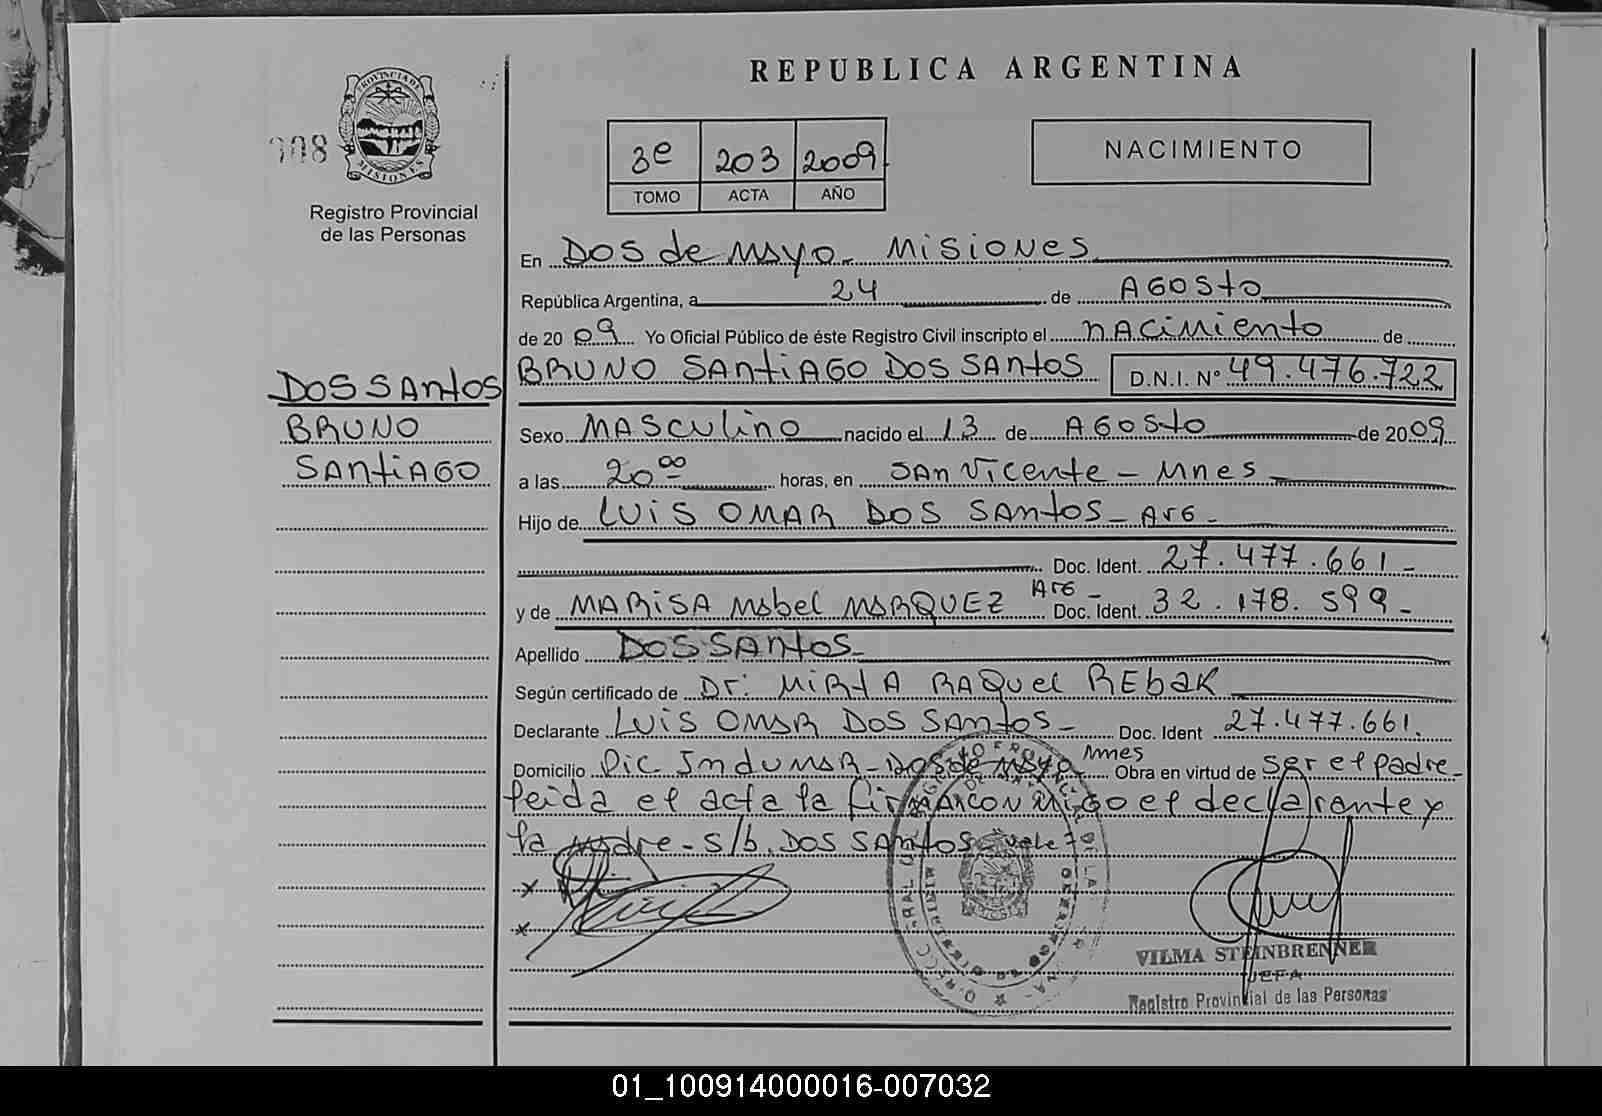 REPUBLICA ARGENTINA
PROVINCIA DE
MISIONES
Registro Provincial
de las Personas
3e 203 2009
TOMO ACTA AÑO
NACIMIENTO
En Dos de Mayo - Misiones
República Argentina, a 24 de Agosto
de 2009 Yo Oficial Público de éste Registro Civil inscripto el nacimiento de
BRUNO SANTIAGO DOS SANTOS D.N.I. Nº 49.476.722
DOS SANTOS
BRUNO
SANTIAGO
Sexo MASCULINO nacido el 13 de AGOSTO de 2009
a las 20 00 horas, en SAN VICENTE - Mnes
Hijo de LUIS OMAR DOS SANTOS - Arg -
Doc. Ident. 27.477.661 -
y de MARISA Mabel MARQUEZ Arg - Doc. Ident. 32.178.599 -
Apellido DOS SANTOS -
Según certificado de Dr: MIRTA RAQUEL REBAK
Declarante LUIS OMAR DOS SANTOS - Doc. Ident 27.477.661.
Domicilio Pic. Indumar - Dos de Mayo - Mnes Obra en virtud de ser el padre -
leida el acta la firman conmigo el declarante y
la madre - s/b. DOS SANTOS - vale -
x
x
VILMA STEINBRENNER
JEFA
Registro Provincial de las Personas
01_100914000016-007032